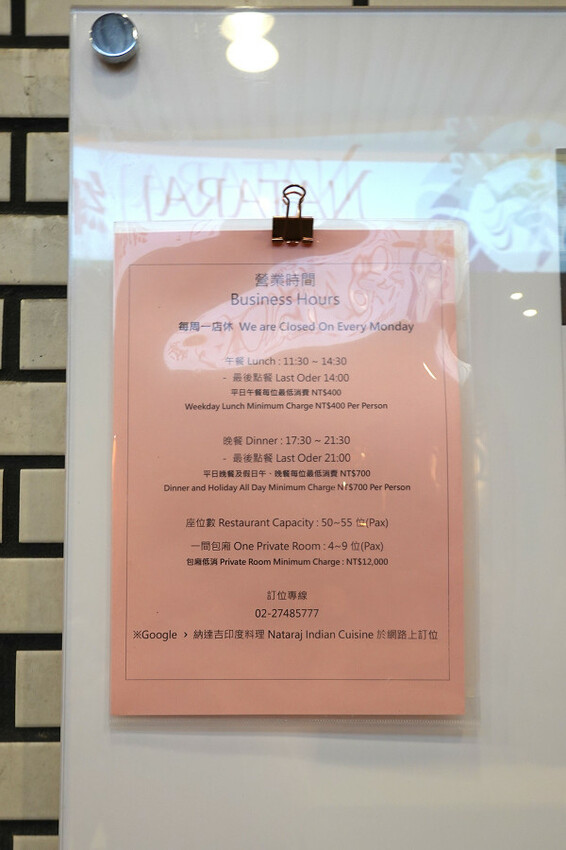 NATARAJ
營業時間
Business Hours
每周一店休 We are Closed On Every Monday
午餐 Lunch : 11:30 ~ 14:30
- 最後點餐 Last Oder 14:00
平日午餐每位最低消費 NT$400
Weekday Lunch Minimum Charge NT$400 Per Person
晚餐 Dinner : 17:30 ~ 21:30
- 最後點餐 Last Oder 21:00
平日晚餐及假日午、晚餐每位最低消費 NT$700
Dinner and Holiday All Day Minimum Charge NT$700 Per Person
座位數 Restaurant Capacity : 50~55 位(Pax)
一間包廂 One Private Room : 4~9 位(Pax)
包廂低消 Private Room Minimum Charge : NT$12,000
訂位專線
02-27485777
※Google > 納達吉印度料理 Nataraj Indian Cuisine 於網路上訂位